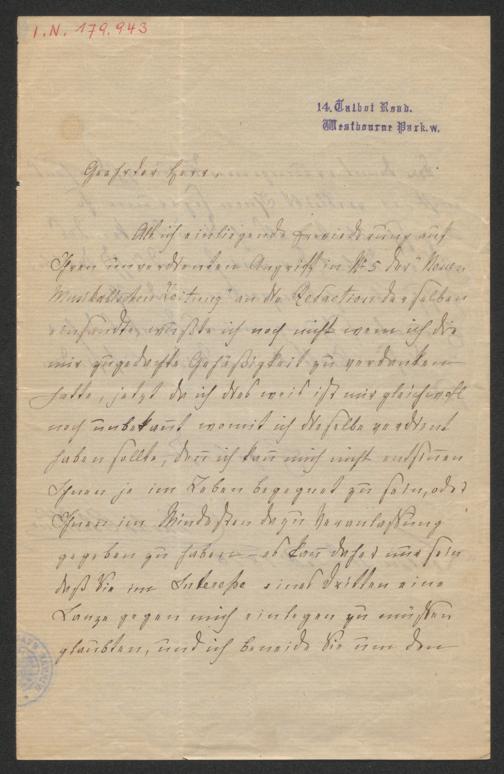 I.N. 179.943
14, Talbot Road.
Westbourne Park. W.
Geehrter Herr,
Als ich einliegende Erwiederung auf
Ihren unverdienten Angriff in No 5 der "Neuen
Musikalischen Zeitung" an die Redaction derselben
einsandte, wußte ich noch nicht wem ich die
mir zugedachte Gehäßigkeit zu verdanken
hatte, jetzt da ich dies weis ist mir gleichwohl
noch unbekañt womit ich dieselbe verdient
haben sollte, deñ ich kañ mich nicht entsiñen
Ihnen je im Leben begegnet zu sein, oder
Ihnen im Mindesten dazu Veranlassung
gegeben zu haben – es kañ daher nur sein
daß Sie im Interesse eines Dritten eine
Lanze gegen mich einlegen zu müssen
glaubten, und ich beneide Sie um den